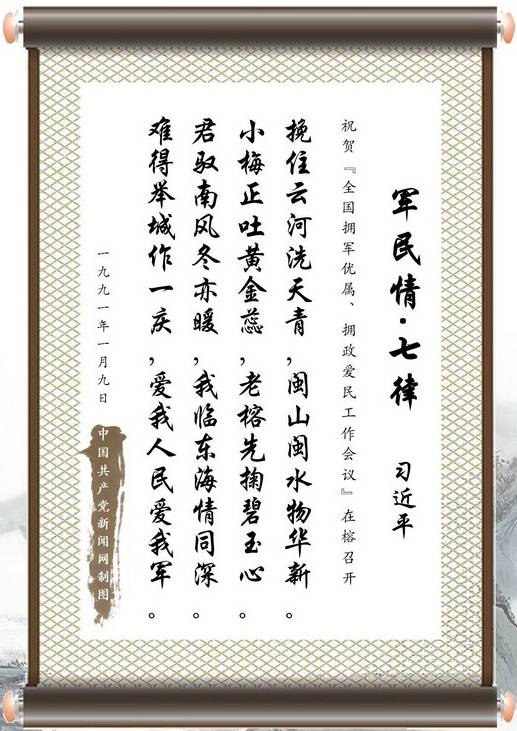 军民情·七律
习近平
祝贺『全国拥军优属、拥政爱民工作会议』在榕召开
挽住云河洗天青，闽山闽水物华新。
小梅正吐黄金蕊，老榕先掬碧玉心。
君驭南风冬亦暖，我临东海情同深。
难得举城作一庆，爱我人民爱我军。
一九九一年一月九日
中国共产党新闻网制图